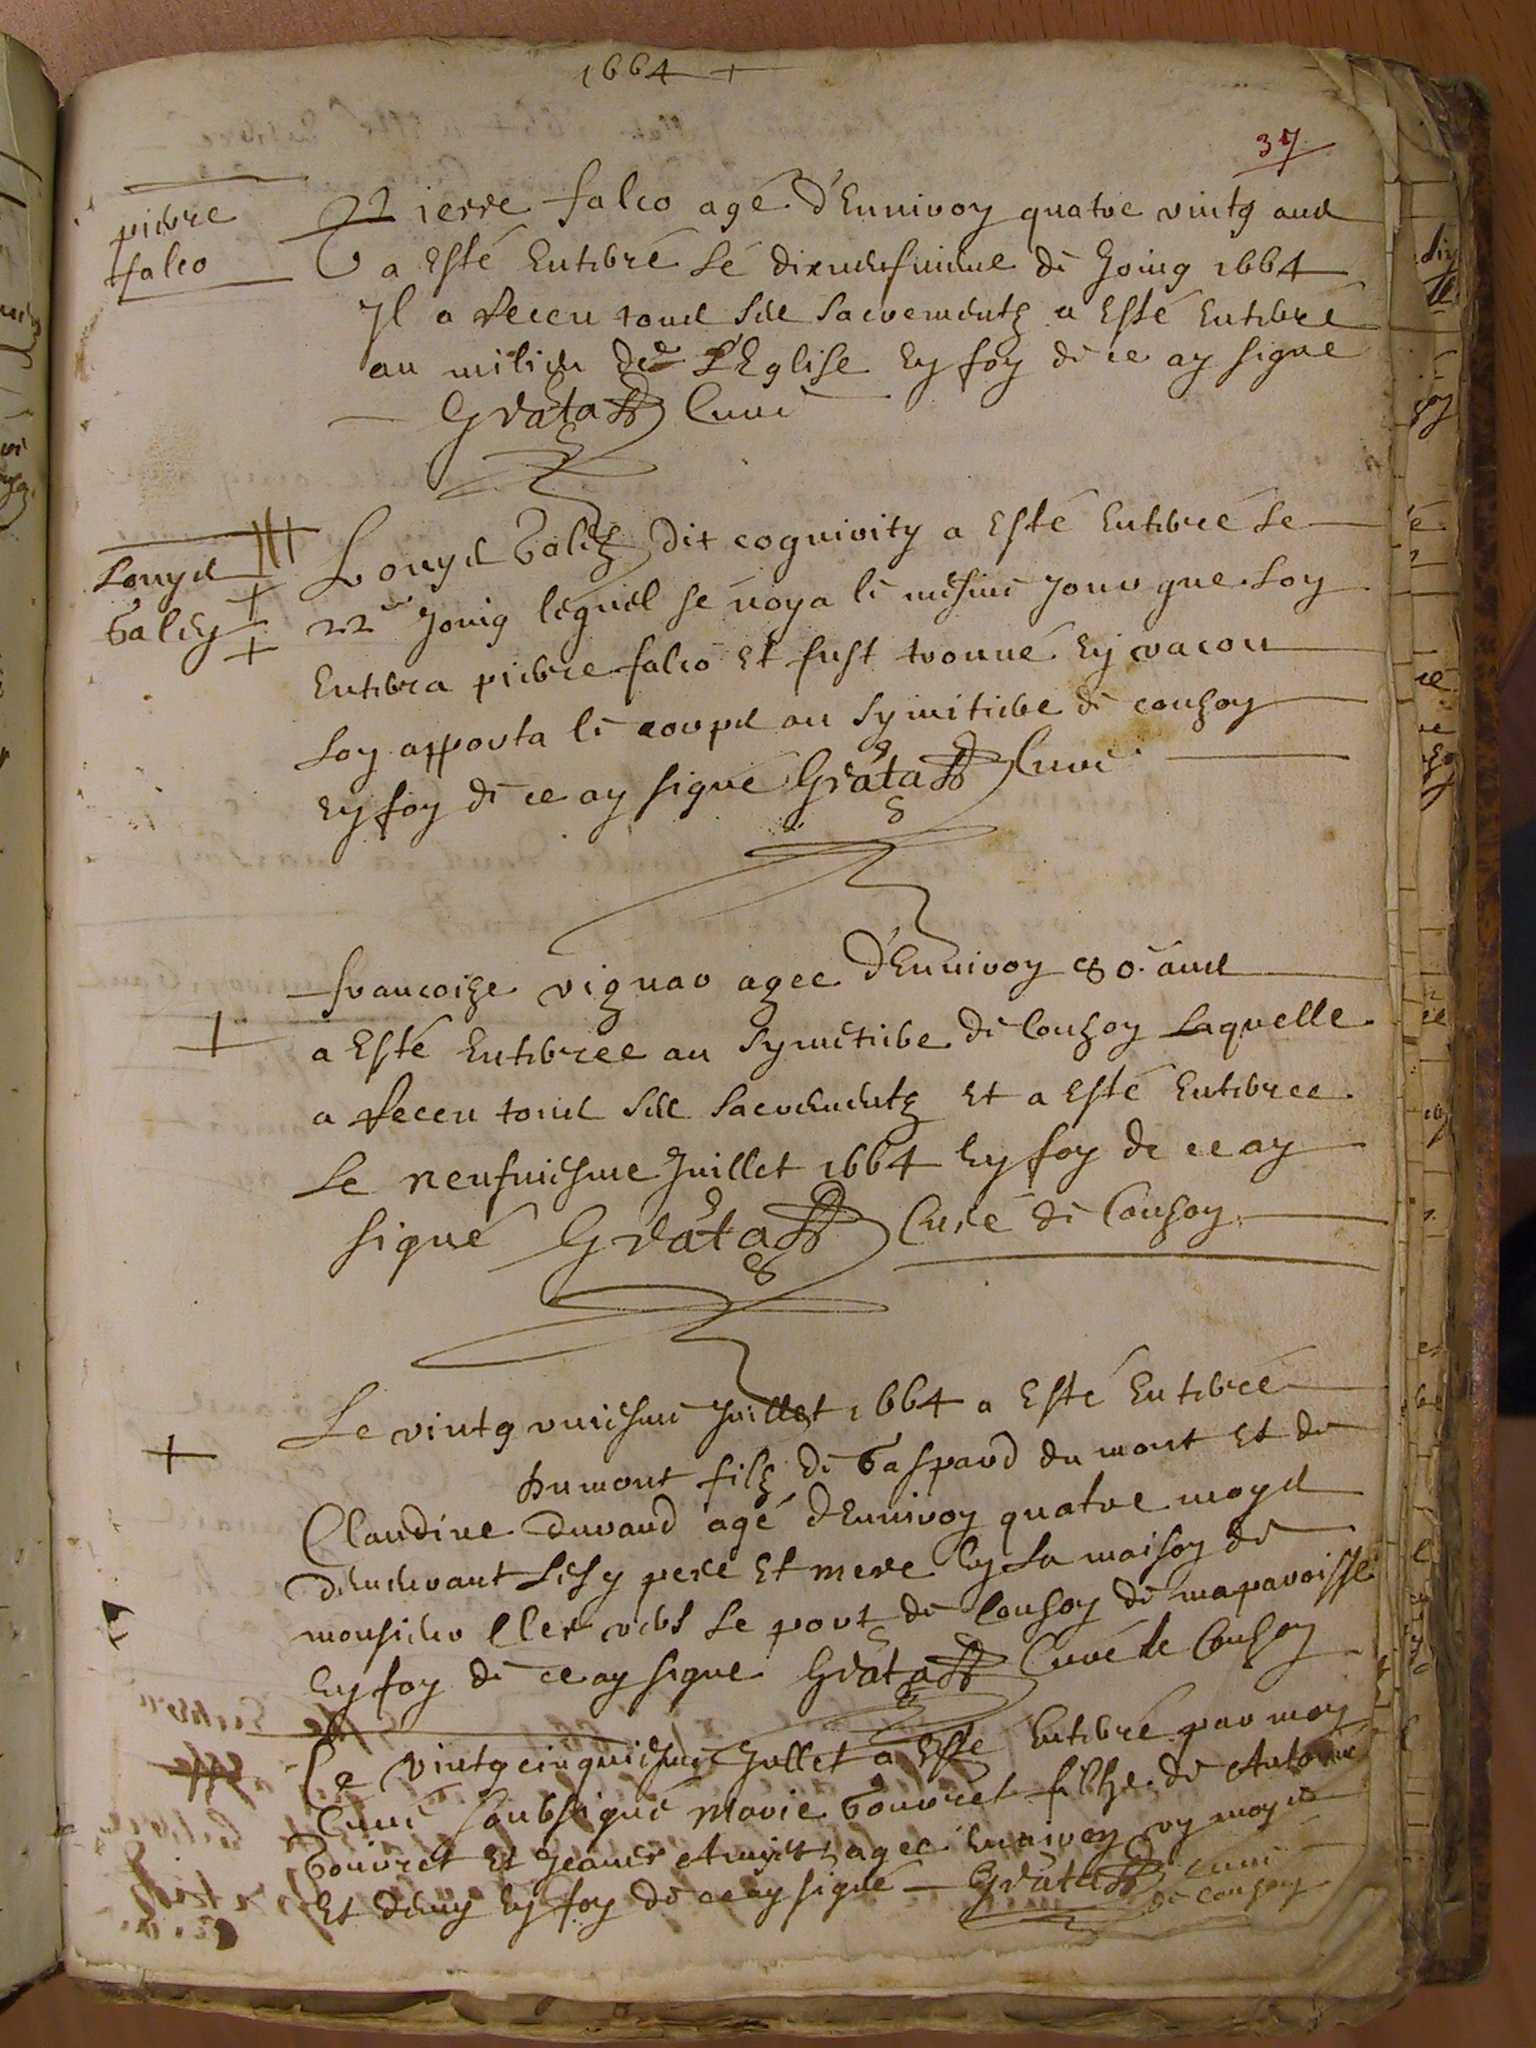 1664
37
pierre
falco
Pierre falco agé d'Environ quatre vintg ans
a Esté Enterré Le dixneufviesme de Joing 1664
Il a Receu tous Ses Sacrementz a Esté Enterré
au milieu de L'Eglise En foy de ce ay signe
Grata Curé
Louys
Galez
Louys Galez dit a Esté Enterré Le
22me Joing lequel se noya le mesme Jour que Lon
Enterra pierre falco Et fust trouvé En
Lon apporta le corps au Symitiere de Couzon
En foy de ce ay signé Grata Curé
francoize vignar agee d'Environ 80 ans
a Esté Enterree au Symetiere de Couzon Laquelle
a Receu tous Ses Sacrementz Et a Esté Enterree
Le neufviesme Juillet 1664 En foy de ce ay
signé Grata Curé de Couzon
Le vintg uniesme Juillet 1664 a Esté Enterré
dumont filz de Gaspard du mont Et de
Claudine Durand agé d'Environ quatre moys
demeurant Lesd pere Et mere En La maison de
monsieur vers Le port de Couzon de ma paroisse
En foy de ce ay signe Grata Curé de Couzon
Le vintg cinquiesme Jullet a Esté Enterré par moy
Curé Soubsigné Marie Gouvret fillze de Antoine
Gouvret Et Jeanne agee Environ un moys
Et demy En foy de ce ay signé Grata Curé
de Couzon